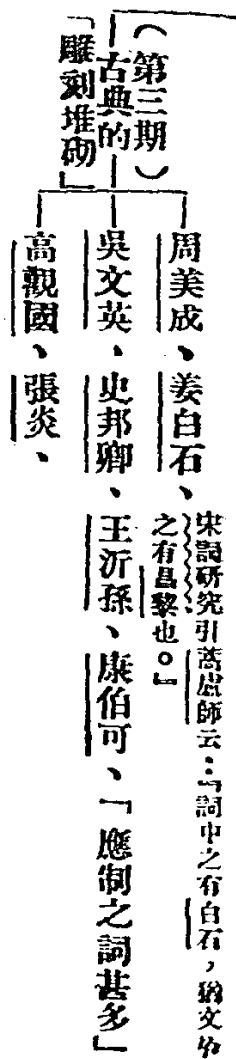 （第三期）
古典的
「雕刻堆砌」
周美成、姜白石、
宋詞研究引蒿廬師云：『詞中之有白石，猶文中
之有昌黎也。』
吳文英、史邦卿、王沂孫、康伯可、「應制之詞甚多」
高觀國、張炎、